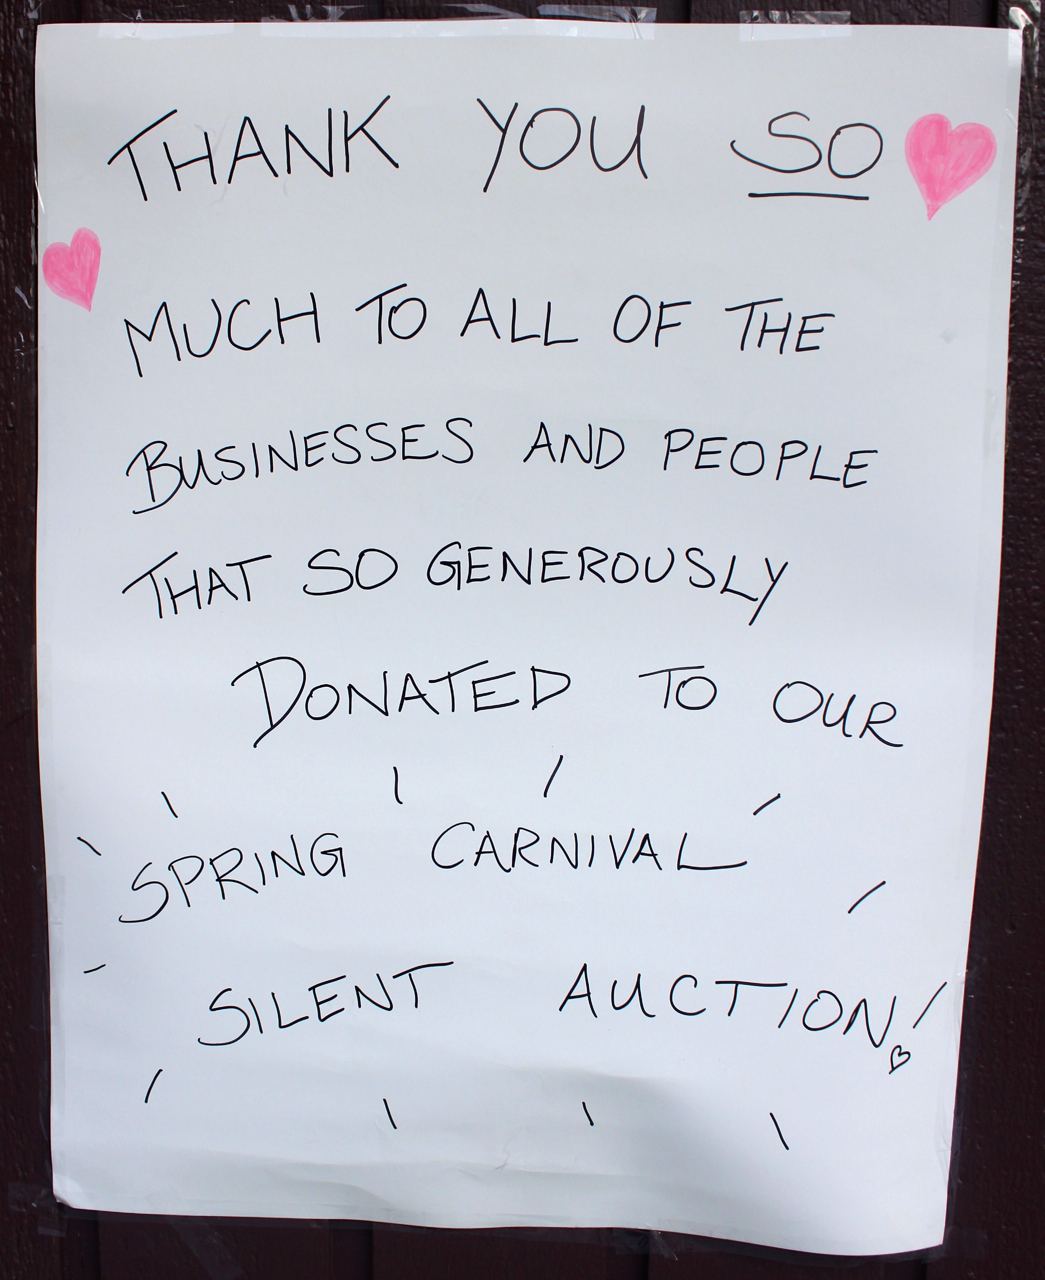 THANK YOU SO
MUCH TO ALL OF THE
BUSINESSES AND PEOPLE
THAT SO GENEROUSLY
DONATED TO OUR
SPRING CARNIVAL
SILENT AUCTION!